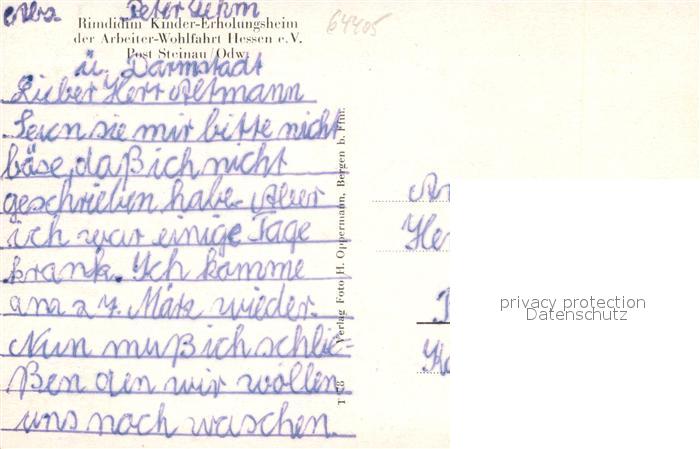 Abs Peter Lehm
64405
Rimdidim Kinder-Erholungsheim
der Arbeiter-Wohlfahrt Hessen e.V.
Post Steinau/Odw.
ü. Darmstadt
Lieber Herr Altmann
Seien sie mir bitte nicht
böse, daß ich nicht
geschrieben habe. Aber
ich war einige Tage
krank. Ich komme
am 27. März wieder.
Nun muß ich schlie-
ßen den wir wollen
uns noch waschen.
Verlag Foto H. Oppermann, Bergen b. Ffm.
An
Her
privacy protection
Datenschutz